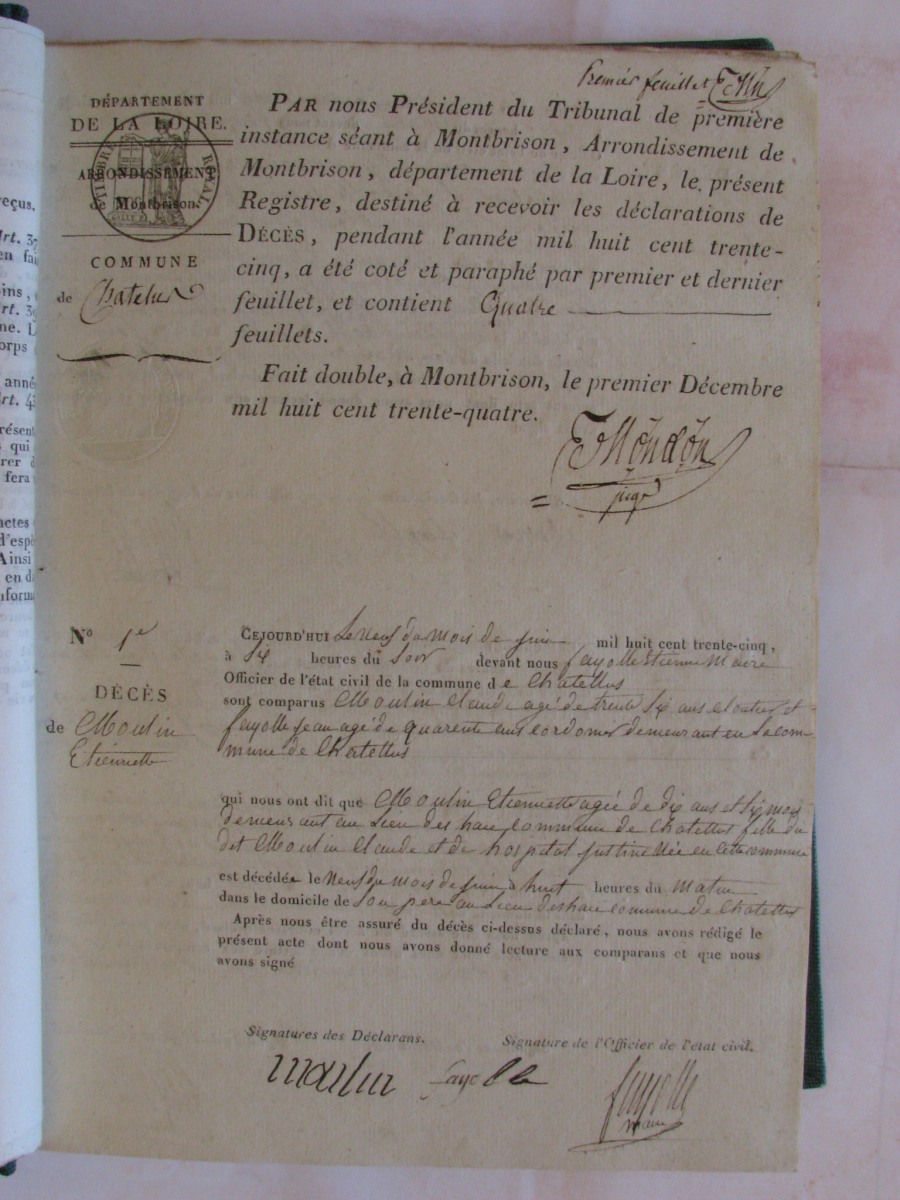 Premier feuillet
DÉPARTEMENT
DE LA LOIRE.
TIMBRE ROYAL
ARRONDISSEMENT
de Montbrison.
COMMUNE
de Chatelus
PAR nous Président du Tribunal de première
instance séant à Montbrison, Arrondissement de
Montbrison, département de la Loire, le présent
Registre, destiné à recevoir les déclarations de
DÉCÈS, pendant l'année mil huit cent trente-
cinq, a été coté et paraphé par premier et dernier
feuillet, et contient Quatre
feuillets.
Fait double, à Montbrison, le premier Décembre
mil huit cent trente-quatre.
Mondon
juge
N° 1er
DÉCÈS
de Moulin
Etiennette
CEJOURD'HUI le neuf du mois de juin mil huit cent trente-cinq,
à six heures du soir devant nous fayolle Etienne Maire
Officier de l'état civil de la commune de Chatellus
sont comparus Moulin Claude agé de trente six ans et
fayolle jean agé de quarente ans cordonier demeurant en la com
mune de Chatellus
qui nous ont dit que Moulin Etiennette agée de dix ans et six mois
demeurant au Lieu des haie commune de Chatellus fille du
dit Moulin Claude et de hospital justine Née en cette commune
est décédée le neuf du mois de juin à huit heures du matin
dans le domicile de son père au Lieu des haie commune de Chatellus
Après nous être assuré du décès ci-dessus déclaré, nous avons rédigé le
présent acte dont nous avons donné lecture aux comparans et que nous
avons signé
Signatures des Déclarans.
Signature de l'Officier de l'état civil.
moulin fayolle
fayolle
maire
reçus.
Art.
en fai
Art.
orps
année
Art.
présent
qui
fera
actes
d'espè
Ainsi
en d